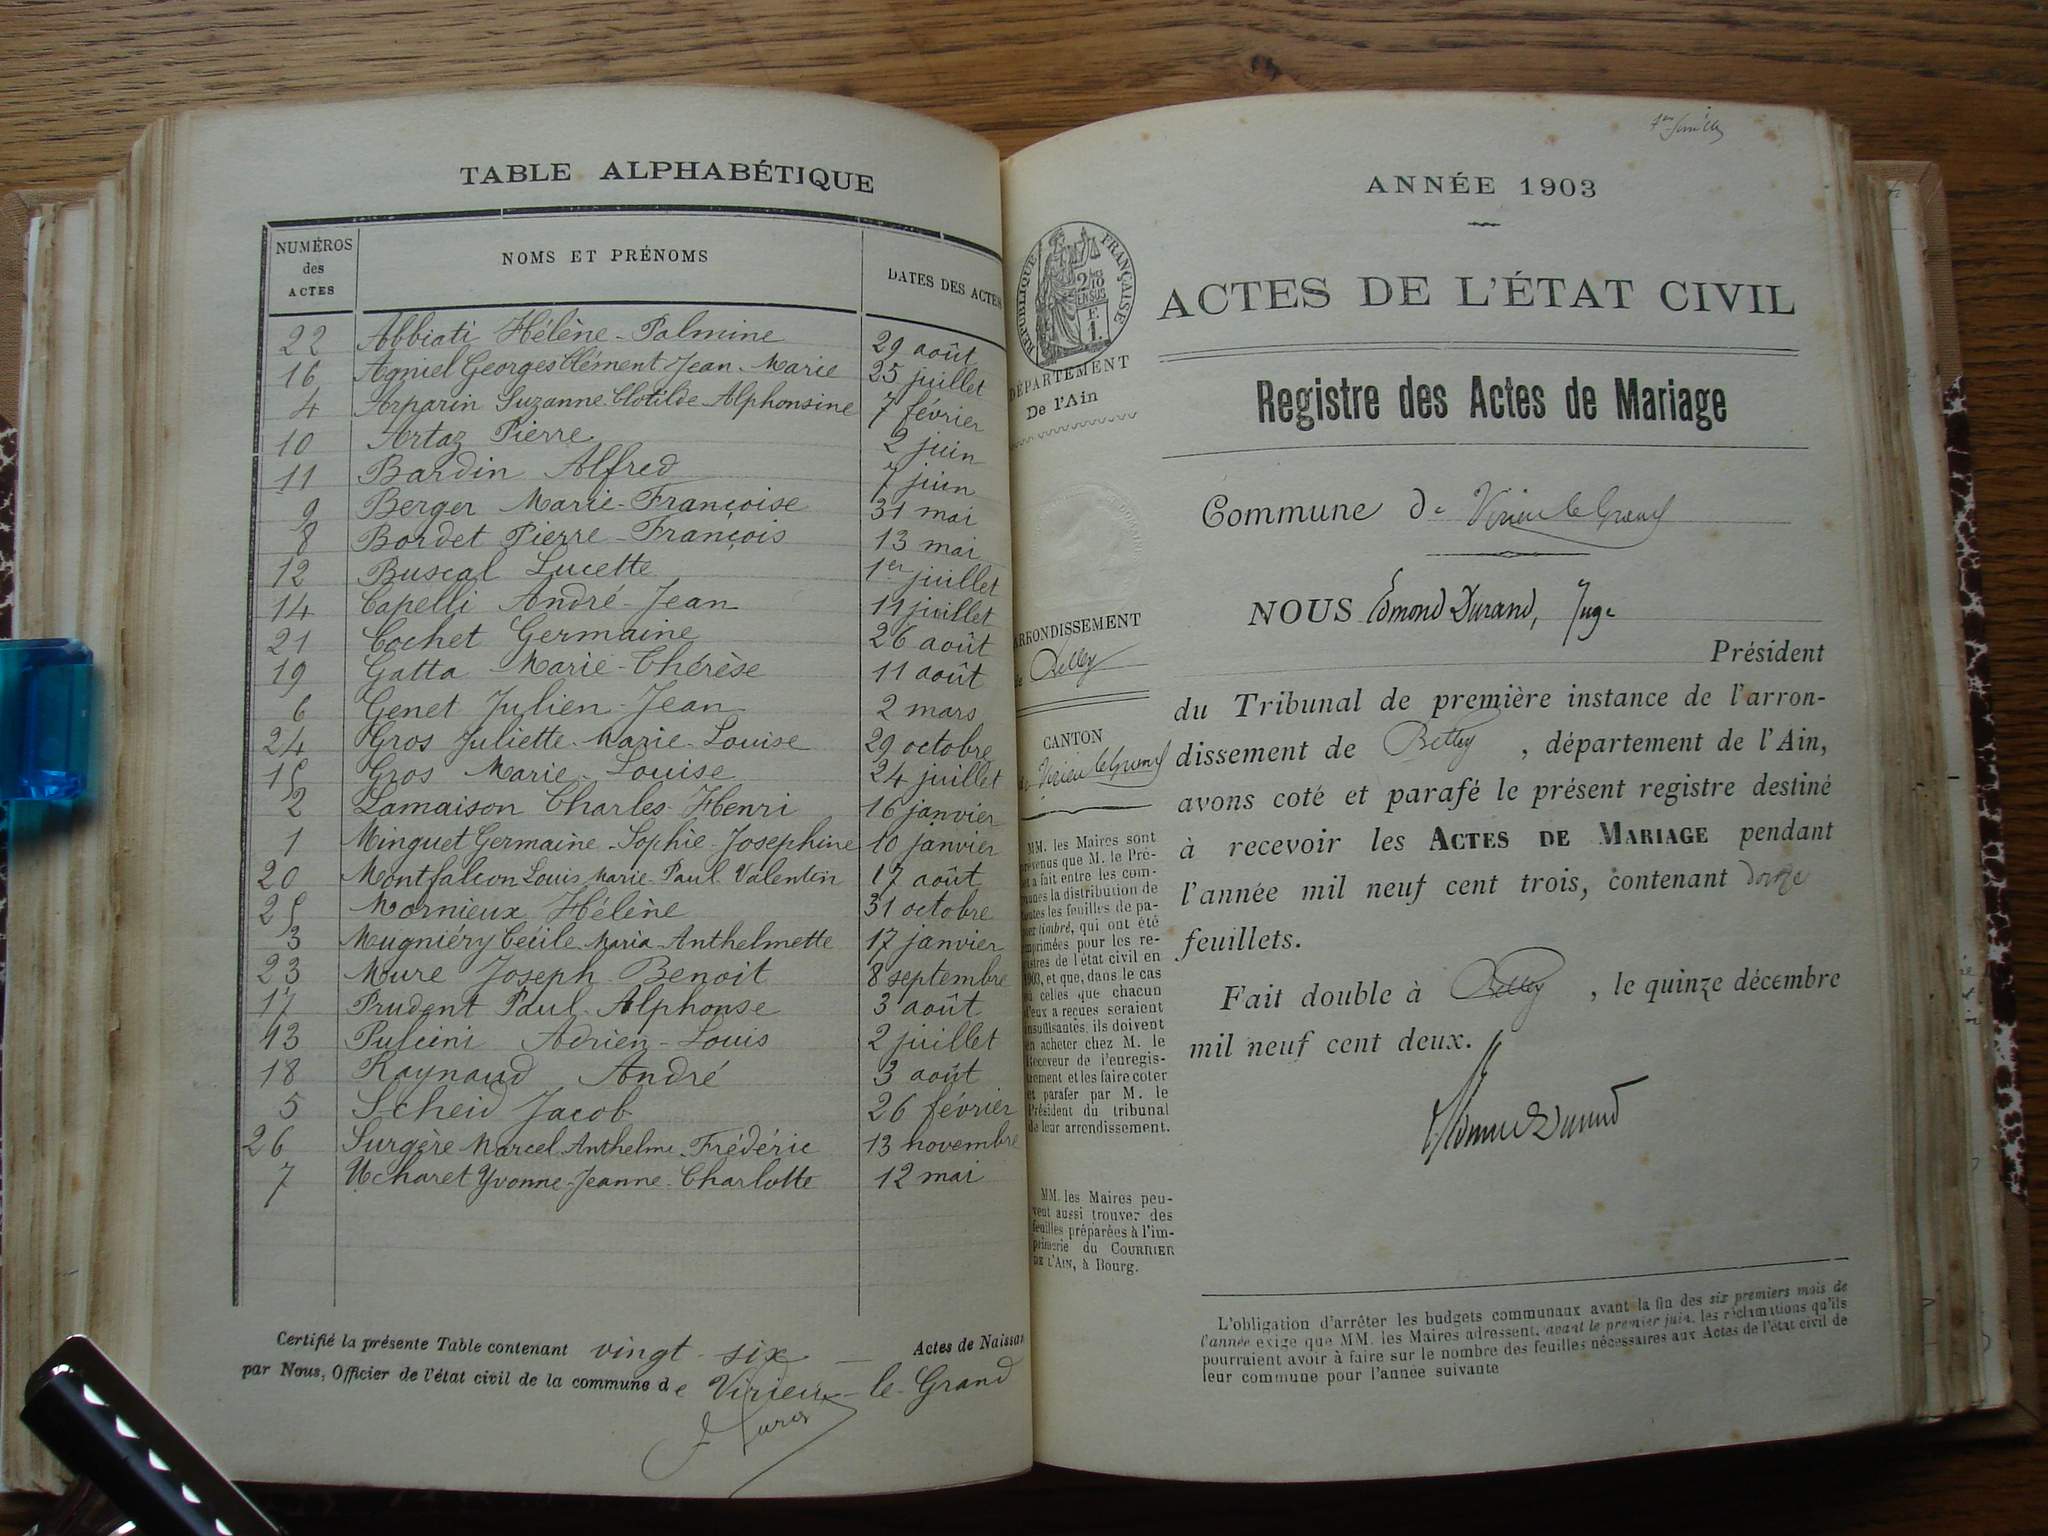 TABLE ALPHABÉTIQUE
NUMÉROS des ACTES NOMS ET PRÉNOMS DATES DES ACTES
22 Abbiati Hélène-Palmine 29 août
16 Agniel Georges Clément Jean-Marie 25 juillet
4 Arparin Suzanne-Clotilde-Alphonsine 7 février
10 Artaz Pierre 2 juin
11 Bardin Alfred 7 juin
9 Berger Marie-Françoise 31 mai
8 Bordet Pierre-François 13 mai
12 Buscal Lucette 1er juillet
14 Capelli André-Jean 11 juillet
21 Cochet Germaine 26 août
19 Gatta Marie-Thérèse 11 août
6 Genet Julien-Jean 2 mars
24 Gros Juliette-Marie-Louise 29 octobre
15 Gros Marie-Louise 24 juillet
2 Lamaison Charles-Henri 16 janvier
1 Minguet Germaine-Sophie-Josephine 10 janvier
20 Montfalcon Louis-Marie-Paul-Valentin 17 août
25 Mornieux Hélène 31 octobre
3 Mugniéry Cécile-Maria-Anthelmette 17 janvier
23 Mure Joseph-Benoit 8 septembre
17 Prudent Paul-Alphonse 3 août
13 Pulcini Adrien-Louis 2 juillet
18 Raynaud André 3 août
5 Scheid Jacob 26 février
26 Surgère Marcel-Anthelme-Frédéric 13 novembre
7 Ucharet Yvonne-Jeanne-Charlotte 12 mai
Certifié la présente Table contenant vingt-six — Actes de Naissan
par Nous, Officier de l'état civil de la commune de Virieu-le-Grand
ANNÉE 1903
RÉPUBLIQUE FRANÇAISE
2/10 EN SUS
E 1.
ACTES DE L'ÉTAT CIVIL
DÉPARTEMENT
De l'Ain
Registre des Actes de Mariage
Commune de Virieu le Grand
NOUS Edmond Durand, Juge
Président
ARRONDISSEMENT
de Belley
CANTON
de Virieu le Grand
du Tribunal de première instance de l'arron-
dissement de Belley, département de l'Ain,
avons coté et parafé le présent registre destiné
à recevoir les ACTES DE MARIAGE pendant
l'année mil neuf cent trois, contenant douze
feuillets.
Fait double à Belley, le quinze décembre
mil neuf cent deux.
Edmond Durand
MM. les Maires sont
prévenus que M. le Pré-
fet a fait entre les com-
munes la distribution de
toutes les feuilles de pa-
pier timbré, qui ont été
imprimées pour les re-
gistres de l'état civil en
1903, et que, dans le cas
où celles que chacun
d'eux a reçues seraient
insuffisantes, ils doivent
en acheter chez M. le
Receveur de l'enregis-
trement et les faire coter
et parafer par M. le
Président du tribunal
de leur arrondissement.
MM. les Maires peu-
vent aussi trouver des
feuilles préparées à l'im-
primerie du COURRIER
DE L'AIN, à Bourg.
L'obligation d'arrêter les budgets communaux avant la fin des six premiers mois de
l'année exige que MM. les Maires adressent, avant le premier juin, les réclamations qu'ils
pourraient avoir à faire sur le nombre des feuilles nécessaires aux Actes de l'état civil de
leur commune pour l'année suivante